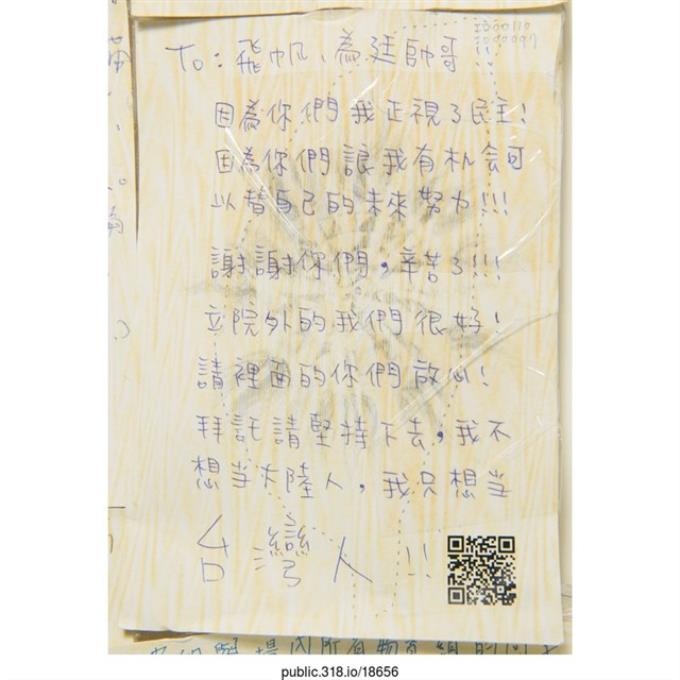 ID00110
To：飛帆、為廷帥哥!!
因為你們我正視了民主!
因為你們讓我有机会可
以替自己的未來努力!!!
謝謝你們，辛苦了!!!
立院外的我們很好!
請裡面的你們放心!
拜託請堅持下去，我不
想当大陸人，我只想当
台灣人!!
public.318.io/18656